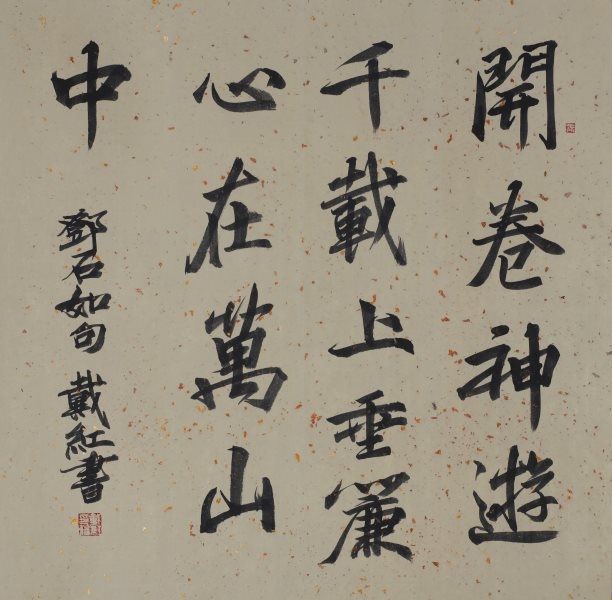 開卷神遊
千載上垂簾
心在萬山
中
鄧石如句 戴紅書